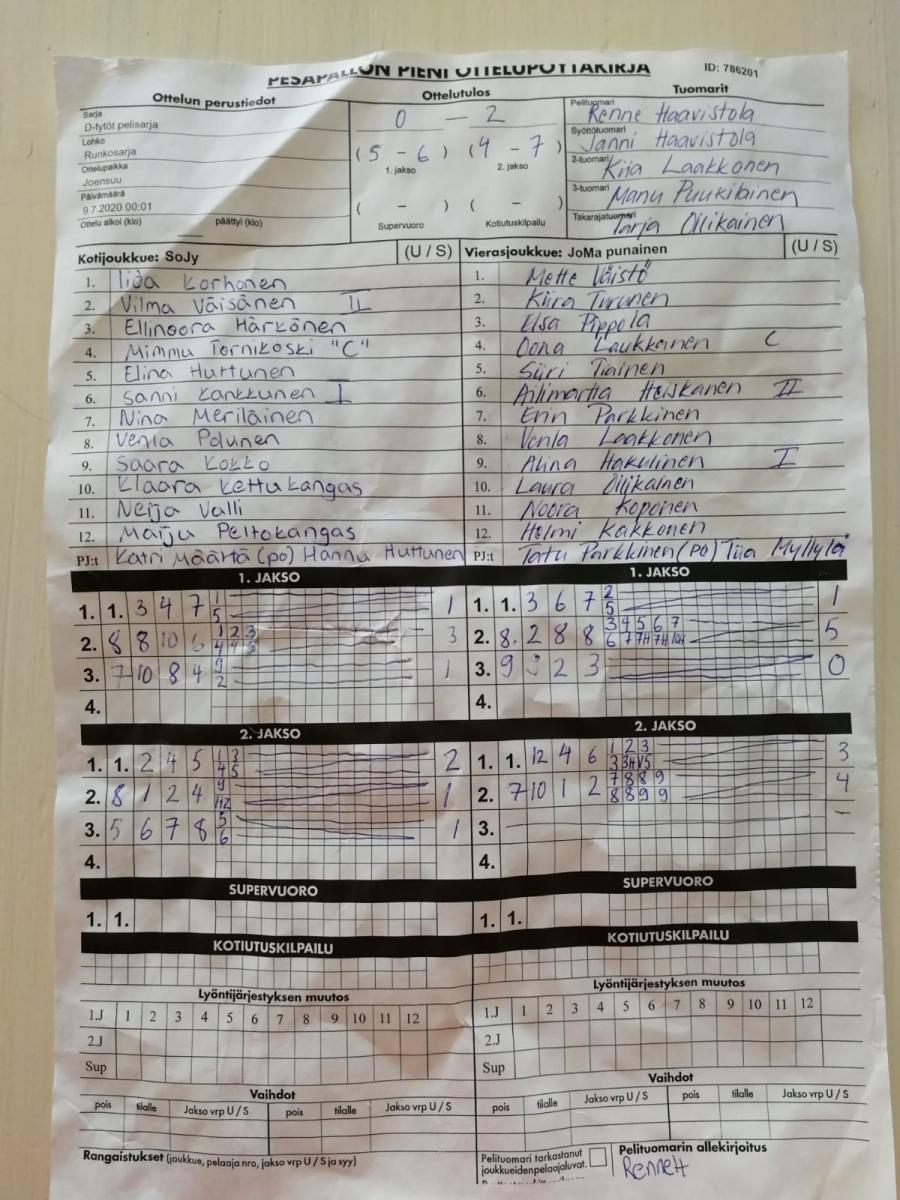 PESÄPALLON PIENI OTTELUPÖYTÄKIRJA
ID: 786201
Ottelun perustiedot
Sarja
D-tytöt pelisarja
Lohko
Runkosarja
Ottelupaikka
Joensuu
Päivämäärä
9.7.2020 00:01
Ottelu alkoi (klo) päättyi (klo)
Ottelutulos
0 - 2
( 5 - 6 ) ( 4 - 7 )
1. jakso 2. jakso
( - ) ( - )
Supervuoro Kotiutuskilpailu
Tuomarit
Pelituomari Renne Haavistola
Syöttötuomari Janni Haavistola
2-tuomari Kiia Laakkonen
3-tuomari Manu Puukilainen
Takarajatuomari Tarja Ollikainen
Kotijoukkue: SoJy (U / S)
1. Iida Korhonen
2. Vilma Väisänen II
3. Ellinoora Härkönen
4. Mimmu Tornikoski "C"
5. Elina Huttunen
6. Sanni Kankkunen I
7. Nina Meriläinen
8. Venla Polunen
9. Saara Kokko
10. Klaara Kettukangas
11. Neija Valli
12. Maiju Peltokangas
PJ:t Katri Määttä (po) Hannu Huttunen
Vierasjoukkue: JoMa punainen (U / S)
1. Mette Väistö
2. Kiira Turunen
3. Elsa Pippola
4. Oona Laukkanen C
5. Siiri Tiainen
6. Ailimartta Heiskanen II
7. Erin Parkkinen
8. Venla Laakkonen
9. Alina Hakulinen I
10. Laura Ollikainen
11. Noora Koponen
12. Helmi Kakkonen
PJ:t Tatu Parkkinen (PO) Tiia Myllylä
1. JAKSO
1. 1. 3 4 7 1 5 1
2. 8 8 10 6 1 2 3 3
3. 7 10 8 4 9 2 1
4.
1. JAKSO
1. 1. 3 6 7 2 5 1
2. 8. 2 8 8 3 4 5 6 7 5
3. 9 2 3 0
4.
2. JAKSO
1. 1. 2 4 5 1 3 4 5 2
2. 8 1 2 4 9 1
3. 5 6 7 8 5 6 1
4.
2. JAKSO
1. 1. 12 4 6 1 2 3 3
2. 7 10 1 2 7 8 8 9 8 8 9 9 4
3. -
4.
SUPERVUORO
1. 1.
SUPERVUORO
1. 1.
KOTIUTUSKILPAILU
KOTIUTUSKILPAILU
Lyöntijärjestyksen muutos
1.J 1 2 3 4 5 6 7 8 9 10 11 12
2.J
Sup
Lyöntijärjestyksen muutos
1.J 1 2 3 4 5 6 7 8 9 10 11 12
2.J
Sup
Vaihdot
pois tilalle Jakso vrp U / S pois tilalle Jakso vrp U / S
Vaihdot
pois tilalle Jakso vrp U / S pois tilalle Jakso vrp U / S
Rangaistukset (joukkue, pelaaja nro, jakso vrp U / S ja syy)
Pelituomari tarkastanut
joukkueidenpelaajaluvat.
Pelituomarin allekirjoitus
RenneH